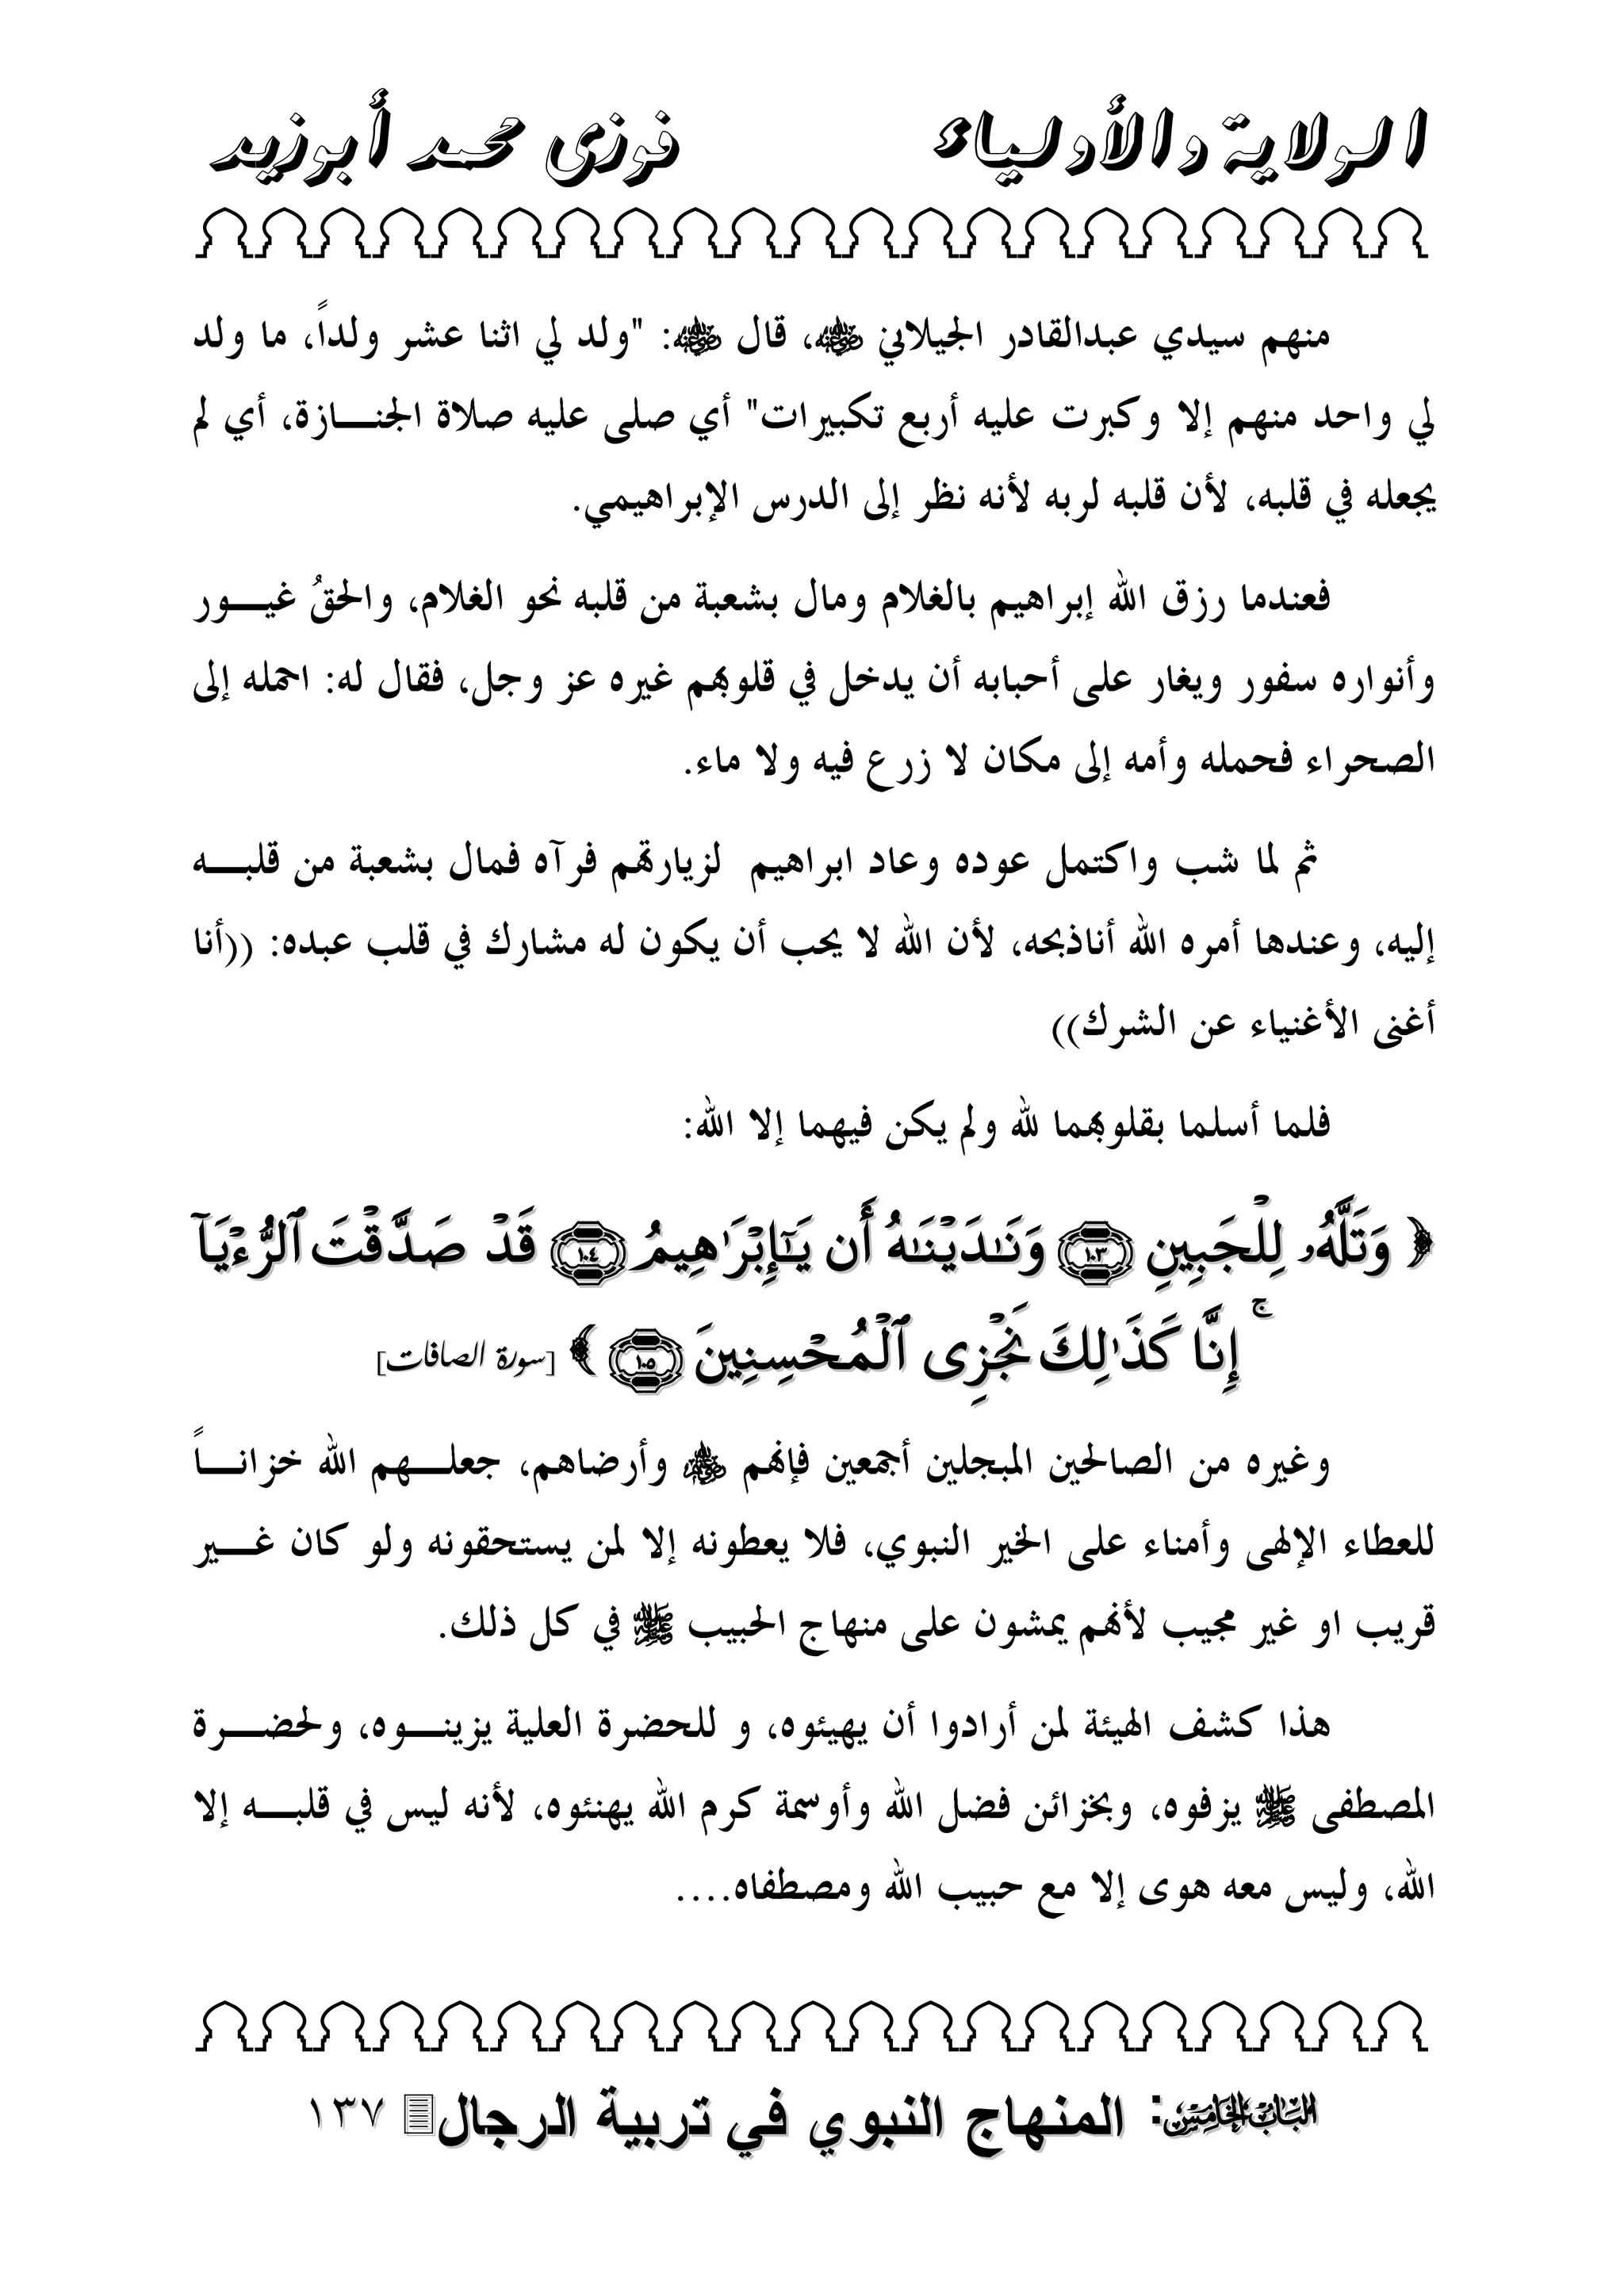 الولاية والأولياء فوزى محمد أبوزيد
منهم سيدي عبدالقادر الجيلاني رضي الله عنه، قال رضي الله عنه: "ولد لي اثنا عشر ولداً، ما ولد
لي واحد منهم إلا وكبرت عليه أربع تكبيرات" أي صلى عليه صلاة الجنـــازة، أي لم
يجعله في قلبه، لأن قلبه لربه لأنه نظر إلى الدرس الإبراهيمي.
فعندما رزق الله إبراهيم بالغلام ومال بشعبة من قلبه نحو الغلام، والحقُ غيـــور
وأنواره سفور ويغار على أحبابه أن يدخل في قلوبهم غيره عز وجل، فقال له: احمله إلى
الصحراء فحمله وأمه إلى مكان لا زرع فيه ولا ماء.
ثم لما شب واكتمل عوده وعاد ابراهيم لزيارتهم فرآه فمال بشعبة من قلبـــه
إليه، وعندها أمره الله أناذبحه، لأن الله لا يحب أن يكون له مشارك في قلب عبده: ((أنا
أغنى الأغنياء عن الشرك))
فلما أسلما بقلوبهما لله ولم يكن فيهما إلا الله:
﴿ وَتَلَّهُۥ لِلْجَبِينِ ١٠٣ وَنَـٰدَيْنَـٰهُ أَن يَـٰٓإِبْرَٰهِيمُ ١٠٤ قَدْ صَدَّقْتَ ٱلرُّءْيَآ
ۚ إِنَّا كَذَٰلِكَ نَجْزِى ٱلْمُحْسِنِينَ ١٠٥ ﴾ [سورة الصافات]
وغيره من الصالحين المبجلين أجمعين فإنهم رضي الله عنهم وأرضاهم، جعلـــهم الله خزانـــاً
للعطاء الإلهى وأمناء على الخير النبوي، فلا يعطونه إلا لمن يستحقونه ولو كان غـــير
قريب او غير مجيب لأنهم يمشون على منهاج الحبيب ﷺ في كل ذلك.
هذا كشف الهيئة لمن أرادوا أن يهيئوه، و للحضرة العلية يزينـــوه، ولحضـــرة
المصطفى ﷺ يزفوه، وبخزائن فضل الله وأوسمة كرم الله يهنئوه، لأنه ليس في قلبـــه إلا
الله، وليس معه هوى إلا مع حبيب الله ومصطفاه....
الباب الخامس: المنهاج النبوي في تربية الرجال ١٣٧